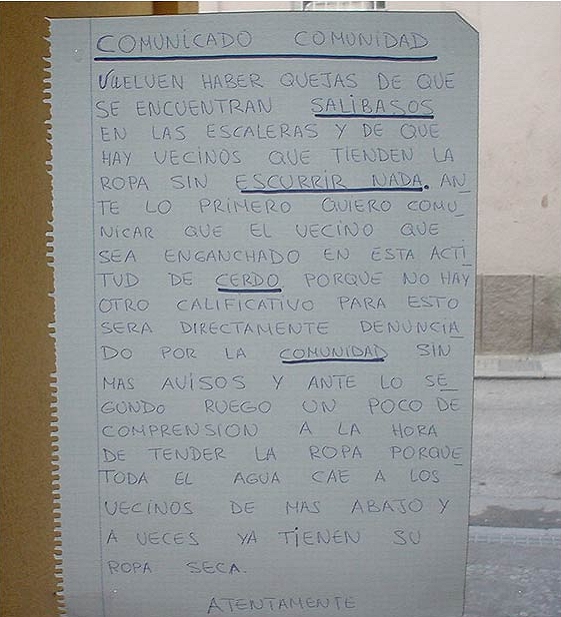 COMUNICADO COMUNIDAD
VUELVEN HABER QUEJAS DE QUE
SE ENCUENTRAN SALIBASOS
EN LAS ESCALERAS Y DE QUE
HAY VECINOS QUE TIENDEN LA
ROPA SIN ESCURRIR NADA. AN_
TE LO PRIMERO QUIERO COMU_
NICAR QUE EL VECINO QUE
SEA ENGANCHADO EN ESTA ACTI_
TUD DE CERDO PORQUE NO HAY
OTRO CALIFICATIVO PARA ESTO
SERA DIRECTAMENTE DENUNCIA_
DO POR LA COMUNIDAD SIN
MAS AVISOS Y ANTE LO SE_
GUNDO RUEGO UN POCO DE
COMPRENSION A LA HORA
DE TENDER LA ROPA PORQUE
TODA EL AGUA CAE A LOS
VECINOS DE MAS ABAJO Y
A VECES YA TIENEN SU
ROPA SECA.
ATENTAMENTE